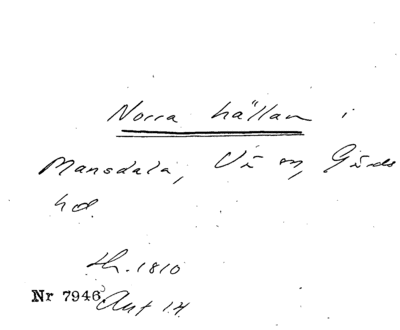 Norra hällan i
Mansdala, Vi sn, Gärds
hd.
th. 1810
Nr 7946 Ant 14